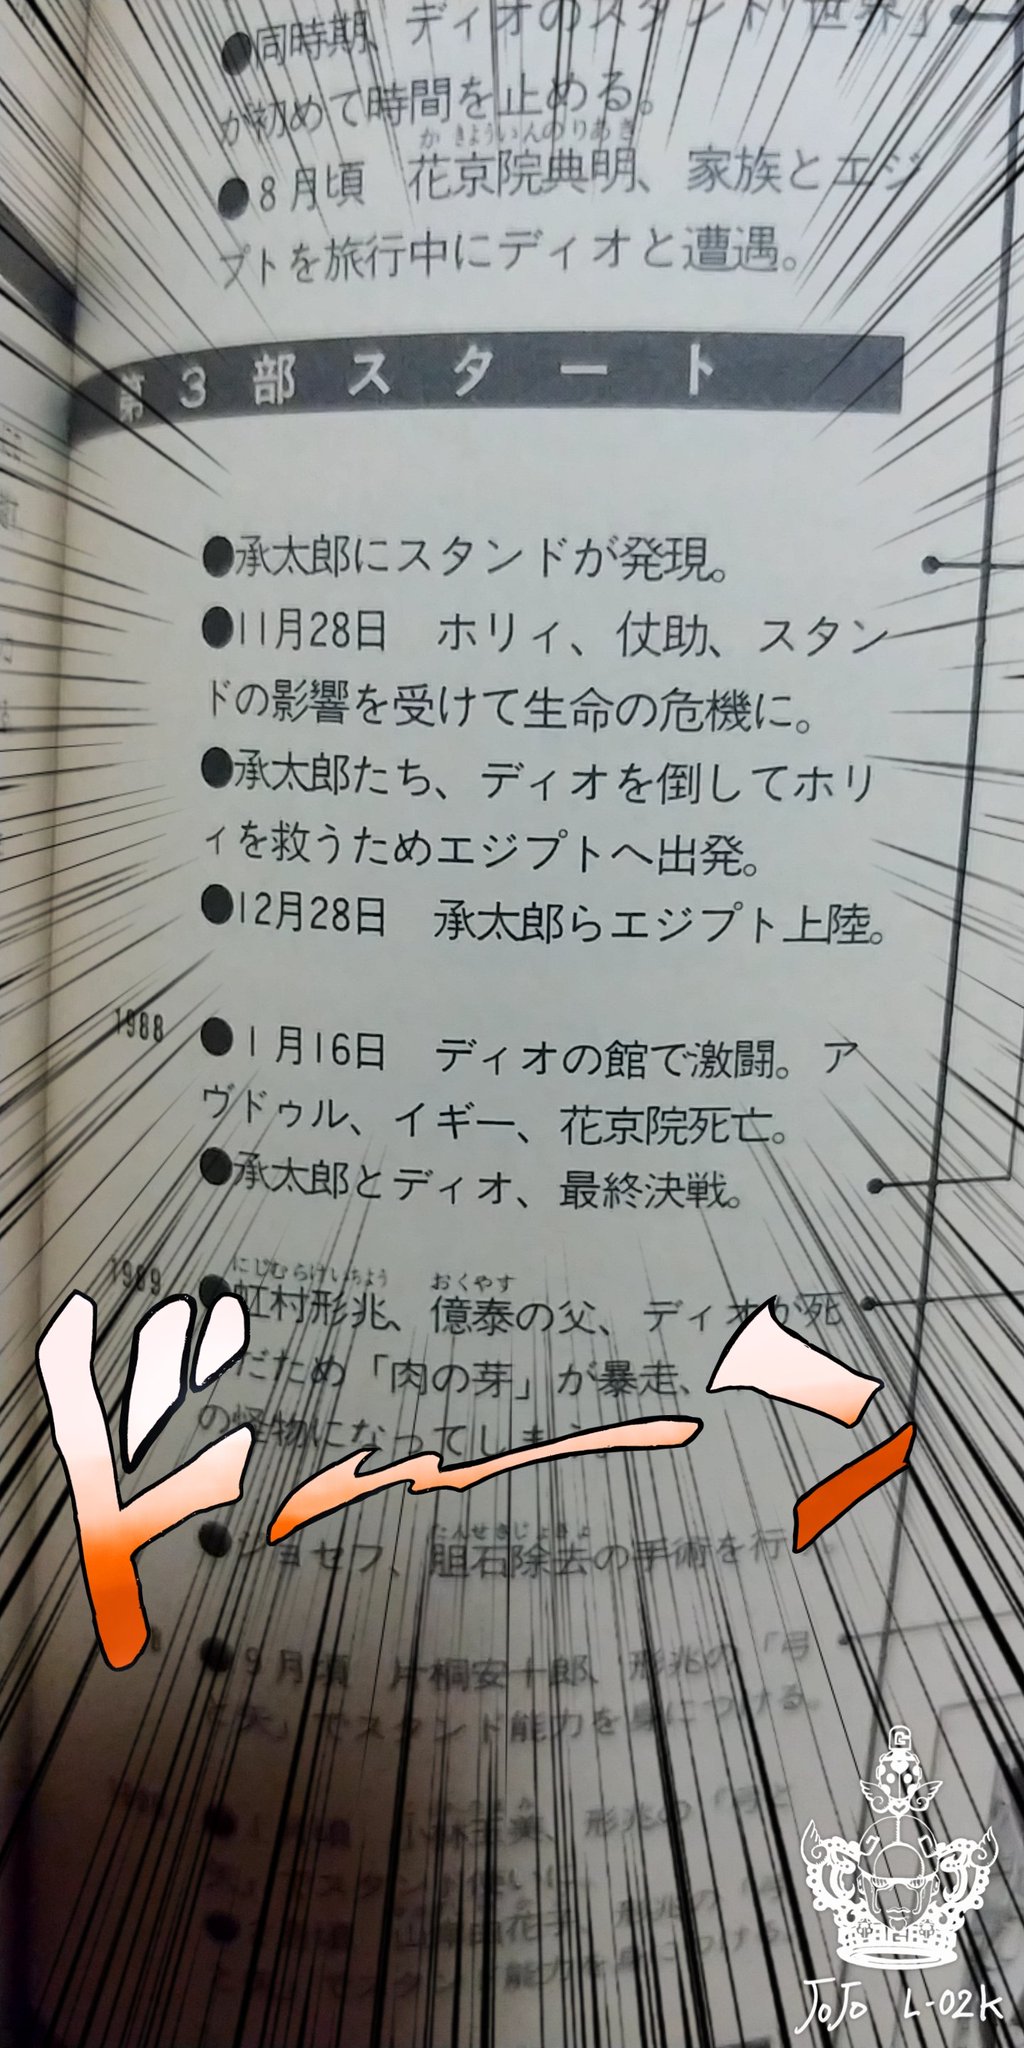 ●同時期、ディオのスタンド「世界」
が初めて時間を止める。
か きょういんのりあき
●8月頃 花京院典明、家族とエジ
プトを旅行中にディオと遭遇。
第3部スタート
●承太郎にスタンドが発現。
●11月28日 ホリィ、仗助、スタン
ドの影響を受けて生命の危機に。
●承太郎たち、ディオを倒してホリ
ィを救うためエジプトへ出発。
●12月28日 承太郎らエジプト上陸。
1988
●1月16日 ディオの館で激闘。ア
ヴドゥル、イギー、花京院死亡。
●承太郎とディオ、最終決戦。
1989
にじむらけいちょう おくやす
●虹村形兆、億泰の父、ディオが死
だため「肉の芽」が暴走、
の怪物になってしまう。
ドーン
たんせきじょきょ
●ジョセフ、胆石除去の手術を行
●9月頃 片桐安十郎、形兆の「弓
と矢」でスタンド能力を身につける。
形兆の「弓と
でスタンド使いに
形兆の「弓
でスタンド能力を身につける。
G
JOJO L-02K